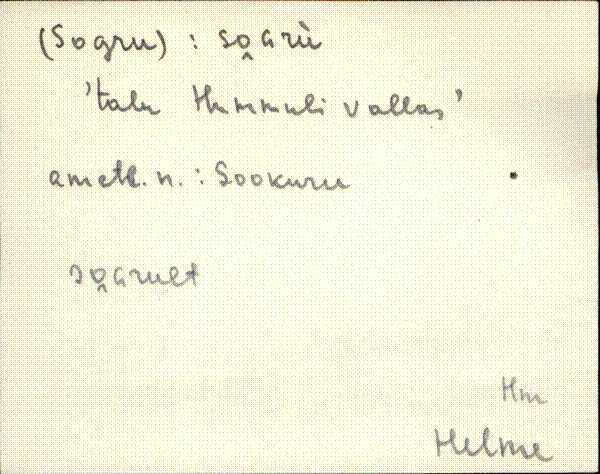 (Sogru) : so̭ɢrù
'talu Hummuli vallas'
ametl. n. : Sookuru
so̭ɢrult
Hm
Helme